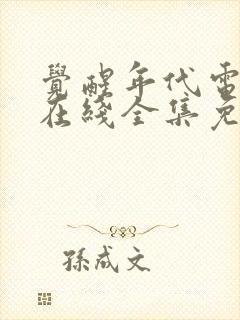 覺醒年代電
在綫全集免
孫成文